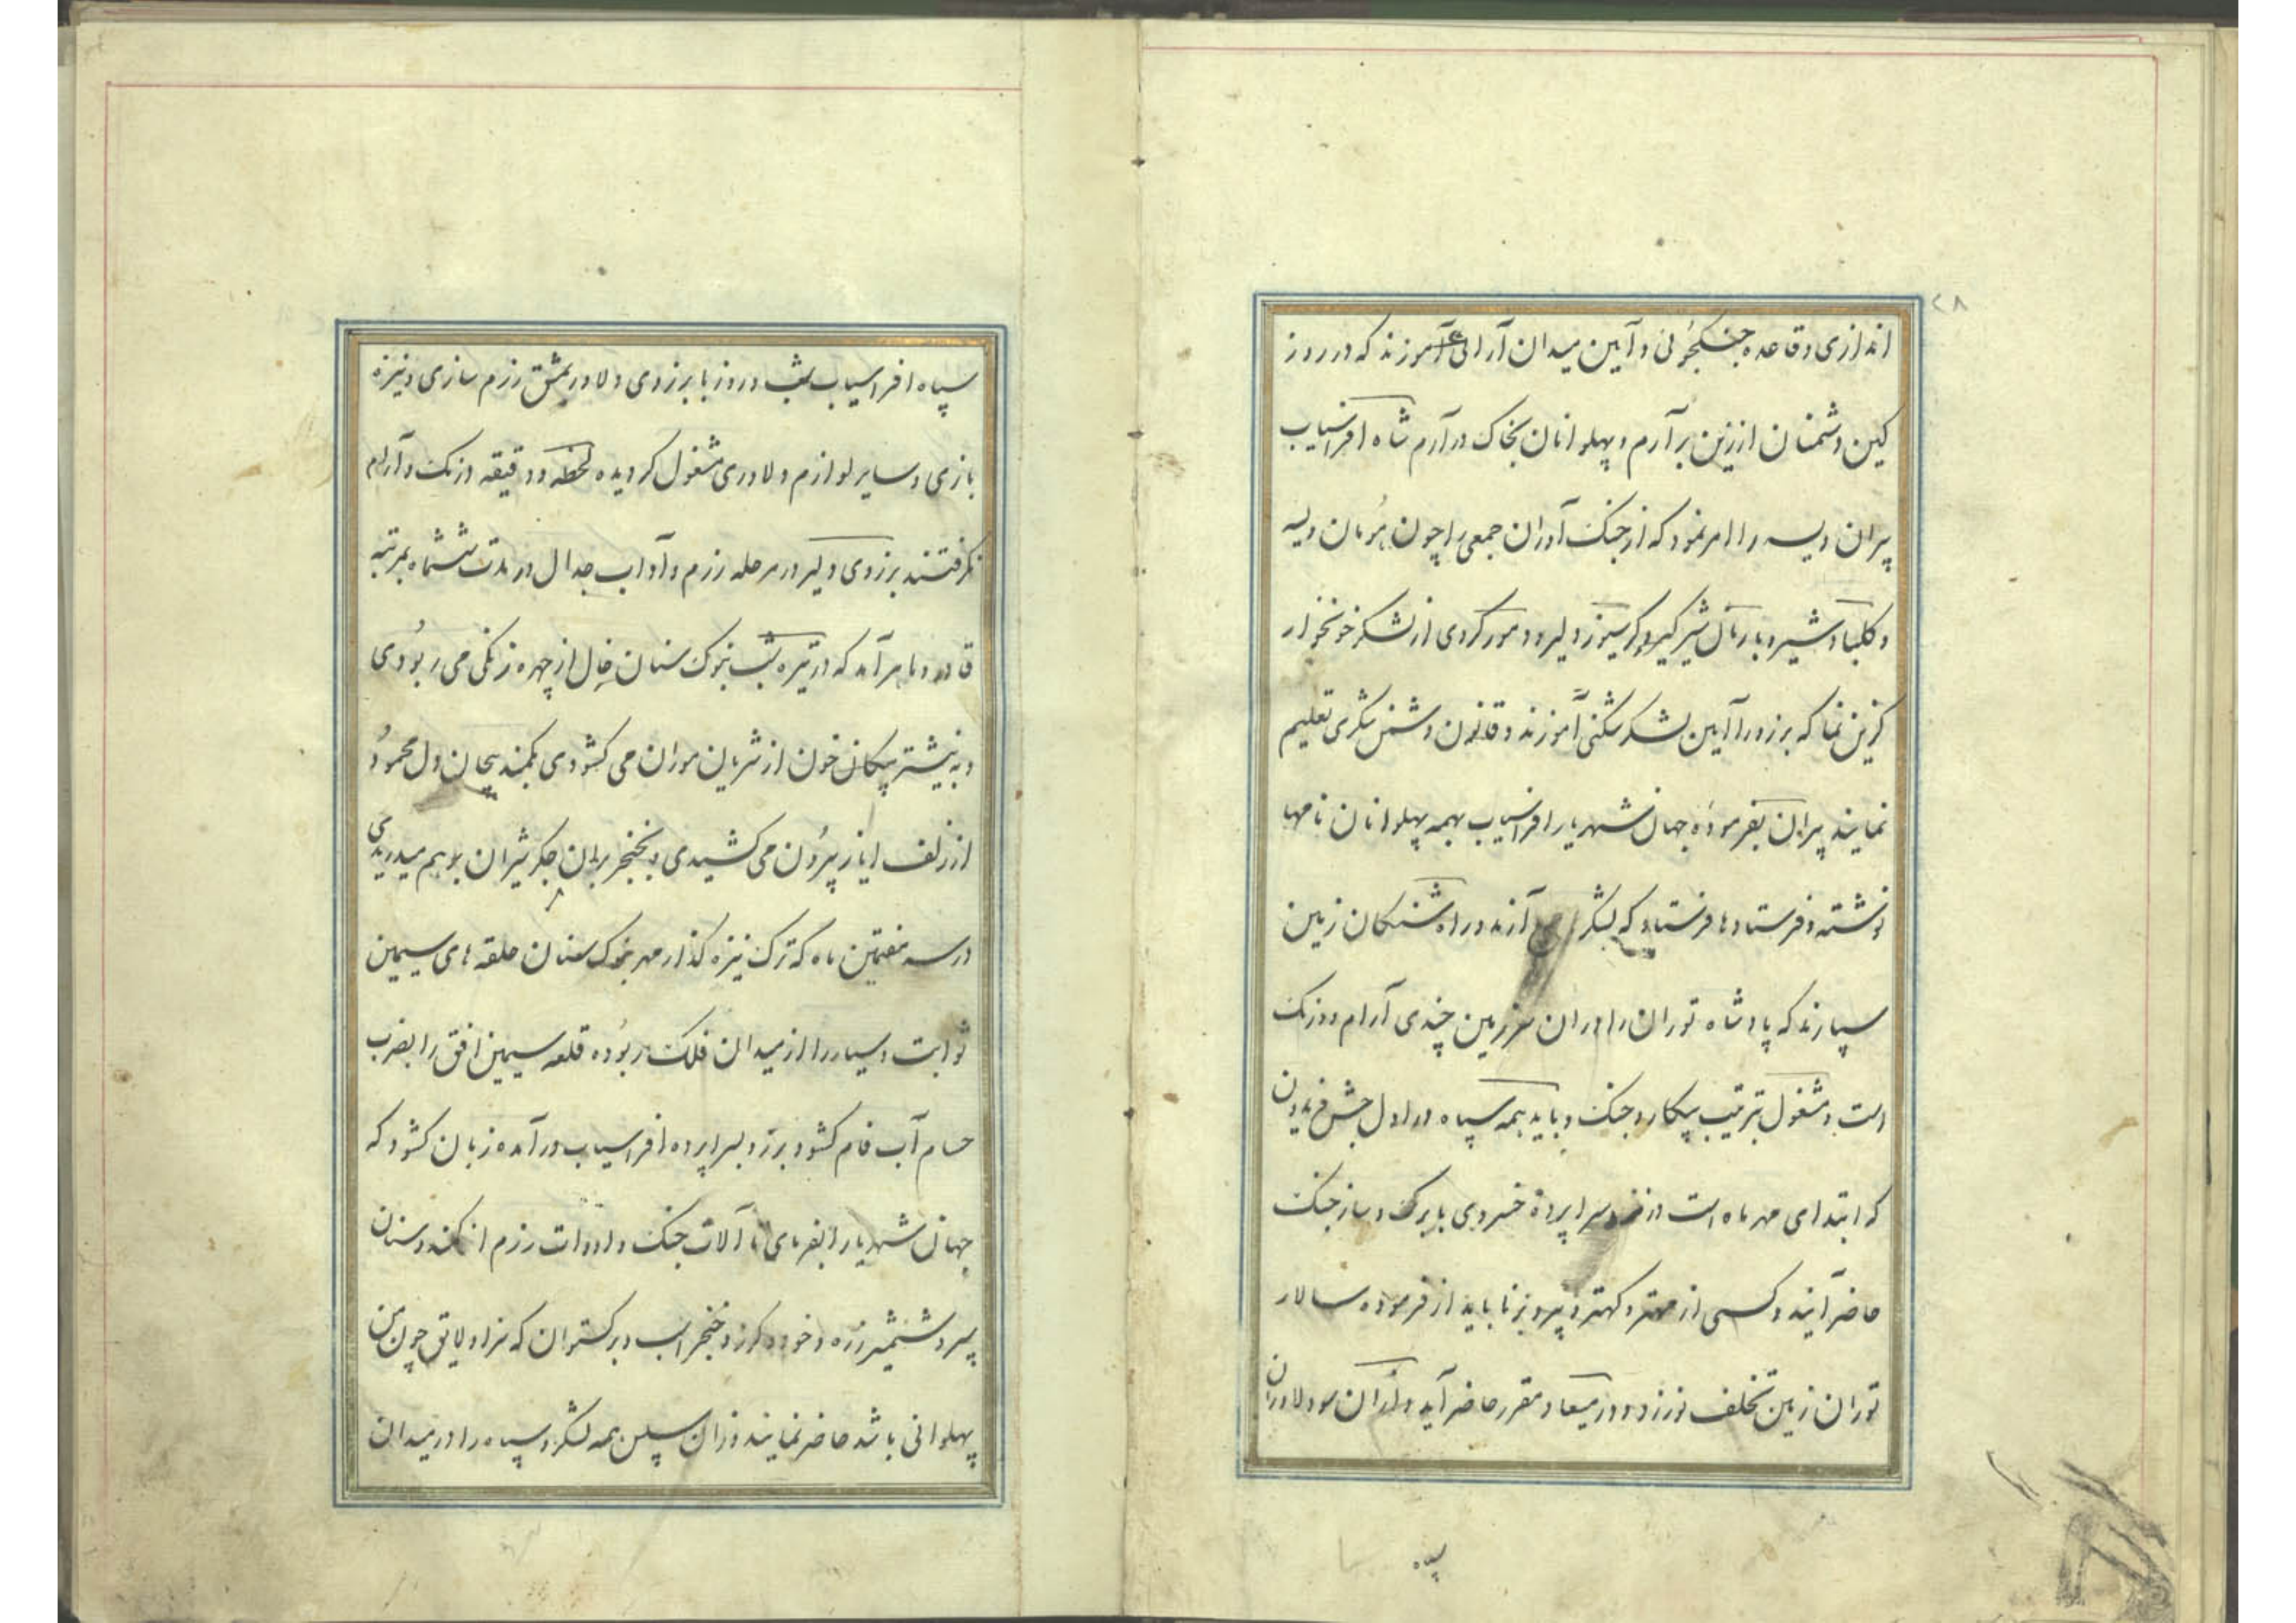 ۲۸
اندازی و قاعده جنگجوئی و آیین میدان آرائی آموزند که در روز
کین دشمنان از زین برآرم و پهلوانان بخاک درآرم شاه افراسیاب
پیران ویسه را امر نمود که از جنک آوران جمعی را چون هومان ویسه
و کلباد شیر و بارمان شیرگیر و کرسیوز دلیر و دمور کردی از لشکر خونخوار
گزین نما که برزو را آیین لشکرشکنی آموزند و قانون دشمن شکری تعلیم
نمایند پیران بفرموده جهان شهریار افراسیاب بهمه پهلوانان نامها
نوشته و فرستادها فرستاد که لشکر آرند در راه شنکان زمین
سپارند که پادشاه توران را در ان سرزمین چندی آرام و درنک
است و مشغول بترتیب پیکار و جنک و باید همه سپاه در اول جشن فریدون
که ابتدای مهر ماه است در نزد سراپرده خسروی با برک و ساز جنک
حاضر آیند و کسی از مهتر و کهتر و پیر و برنا باید از فرموده سالار
توران زمین تخلف نورزد و در میعاد مقرر حاضر آید و از آن سو دلاوران
سپاه
سپاه افراسیاب شب و روز با برزوی دلاور بمشق رزم سازی و نیزه
بازی و سایر لوازم دلاوری مشغول کردیده لحظه و دقیقه درنک و آرام
نکرفتند برزوی دلیر در مرحله رزم و آداب جدال در مدت ششماه بمرتبه
قادر و ماهر آمد که در تیره شب بنوک سنان خال از چهره زنکی می ربودی
و به نیشتر پیکان خون از شریان موران می کشودی بکمند پیچان دل محمود
از زلف ایاز بیرون می کشیدی و بخنجر بران جکر شیران بوهم میدریدی
در سه هفتمین ماه که ترک نیزه کذار مهر بنوک سنان حلقه های سیمین
ثوابت و سیار را از میدان فلک ربوده قلعه سیمین افق را بضرب
حسام آب فام کشود برزو بسراپرده افراسیاب درآمده زبان کشود که
جهان شهریارا بفرمای تا آلات جنک و ادوات رزم از کمند و سنان
سپر و شمشیر زره و خود و کرز و خنجر اسب و برکستوان که سزاو لایق چون من
پهلوانی باشد حاضر نمایند و زان سپس همه لشکر و سپاه را در میدان